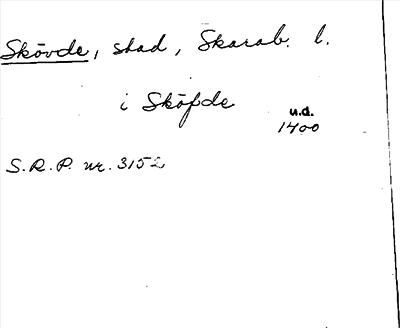 Skövde, stad, Skarab. l.
i Sköfde
u.d.
1400
S.R.P. nr. 3152